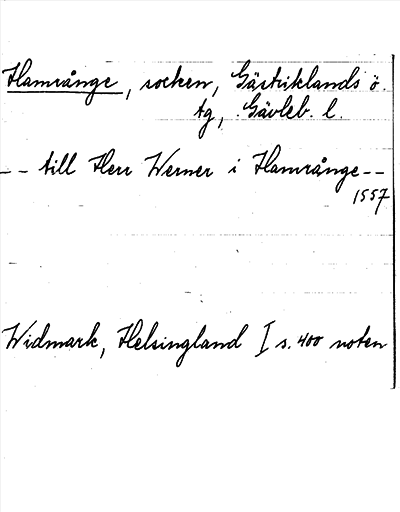 Hamrånge, socken, Gästriklands ö.
tg, Gävleb. l.
-- till Herr Werner i Hamrånge--
1557
Widmark, Helsingland I s. 400 noten